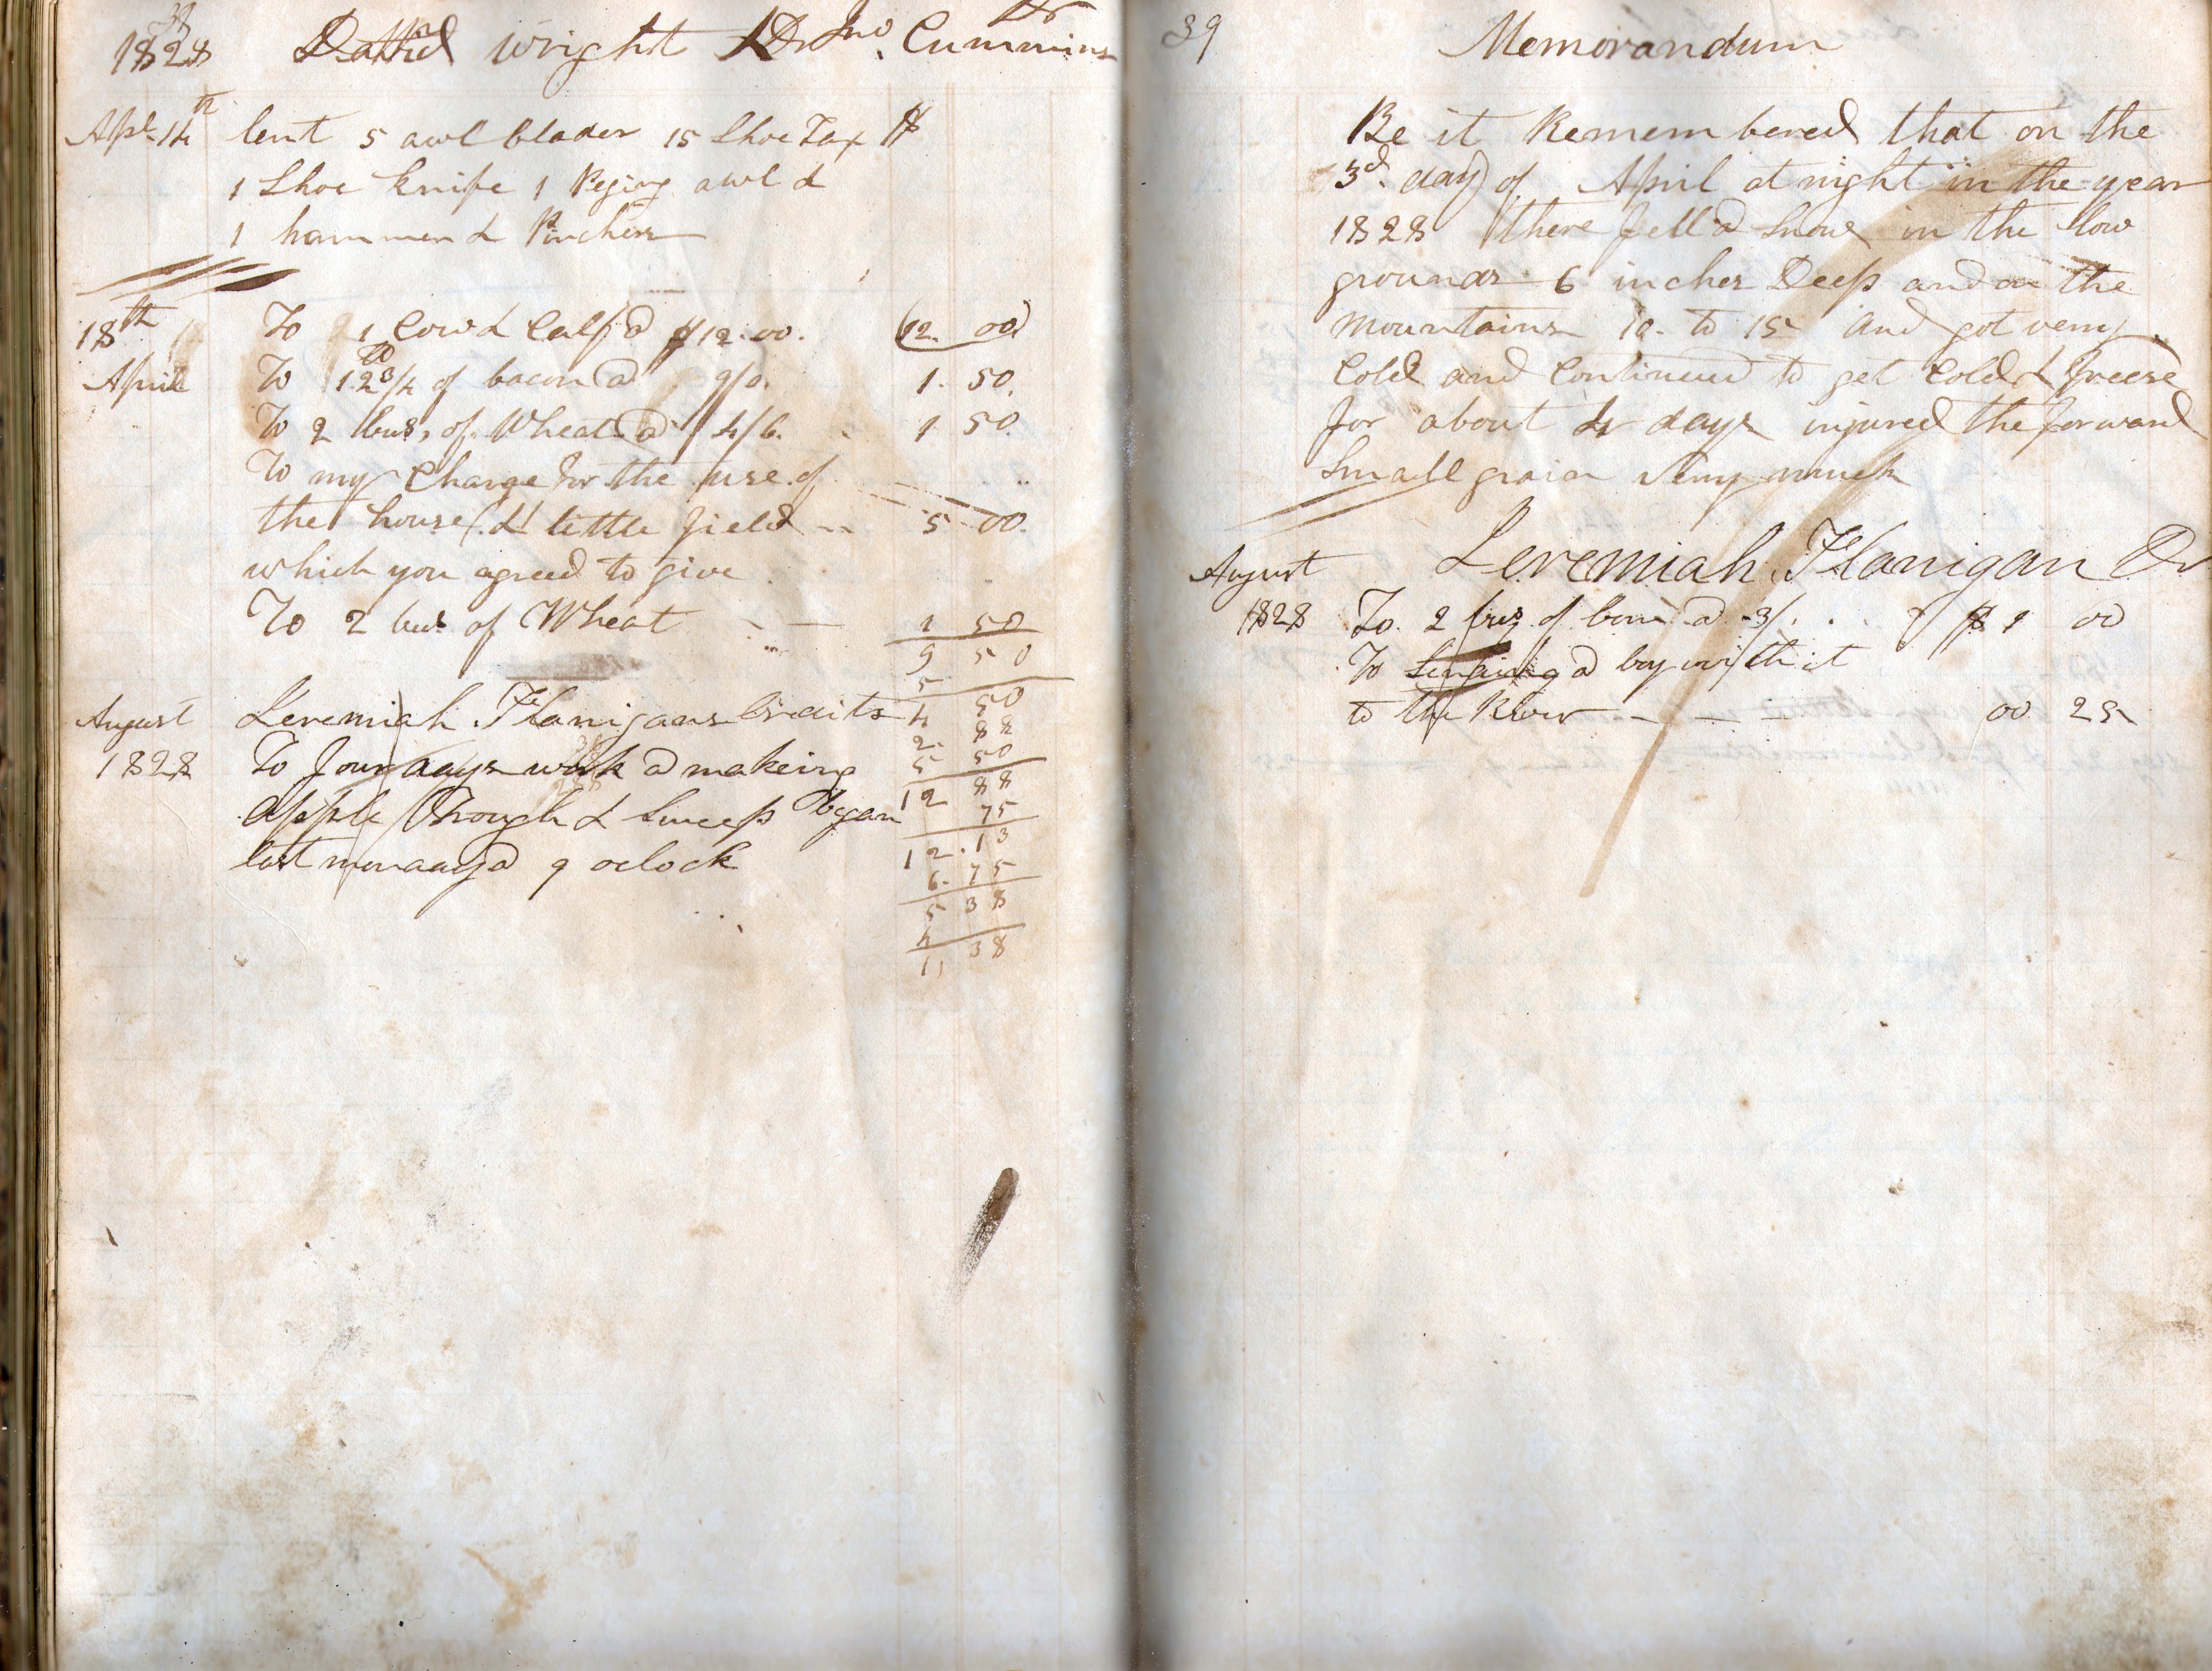 38
1828 David Wright Dr Jno. Cummins
Apl. 14th lent 5 awl blades 15 Shoe Tax $
1 Shoe knife 1 Peging awl &
1 hammer & Pinchers
18th To 1 Cow & Calf @ $12.00. 12. 00
April To 12 3/4 lb of bacon @ 9/0. 1. 50.
To 2 bus. of Wheat @ 4/6. 1 50.
To my Charge for the use of
the house & little field 5 00.
which you agreed to give
To 2 bus. of Wheat 1 50
9 50
5
August Jeremiah Flanigans Credits 4 50
2. 88
1828 To four days work @ makeing 5 50
12 88
apple Trough & Sweep began 75
12.13
last monday @ 9 oclock
6. 75
5 38
4
11 38
39 Memorandum
Be it Remembered that on the
3d. day of April at night in the year
1828 there fell a Snow in the low
grounds 6 inches Deep and on the
mountains 10. to 15 and got very
Cold and Continued to get Cold & freese
for about 4 days injured the forward
Small grain very much
August Jeremiah Flanigan Dr
1828 To. 2 bus. of corn @ 3/. $ 1 00
To Sending a boy with it
to the River 00 25